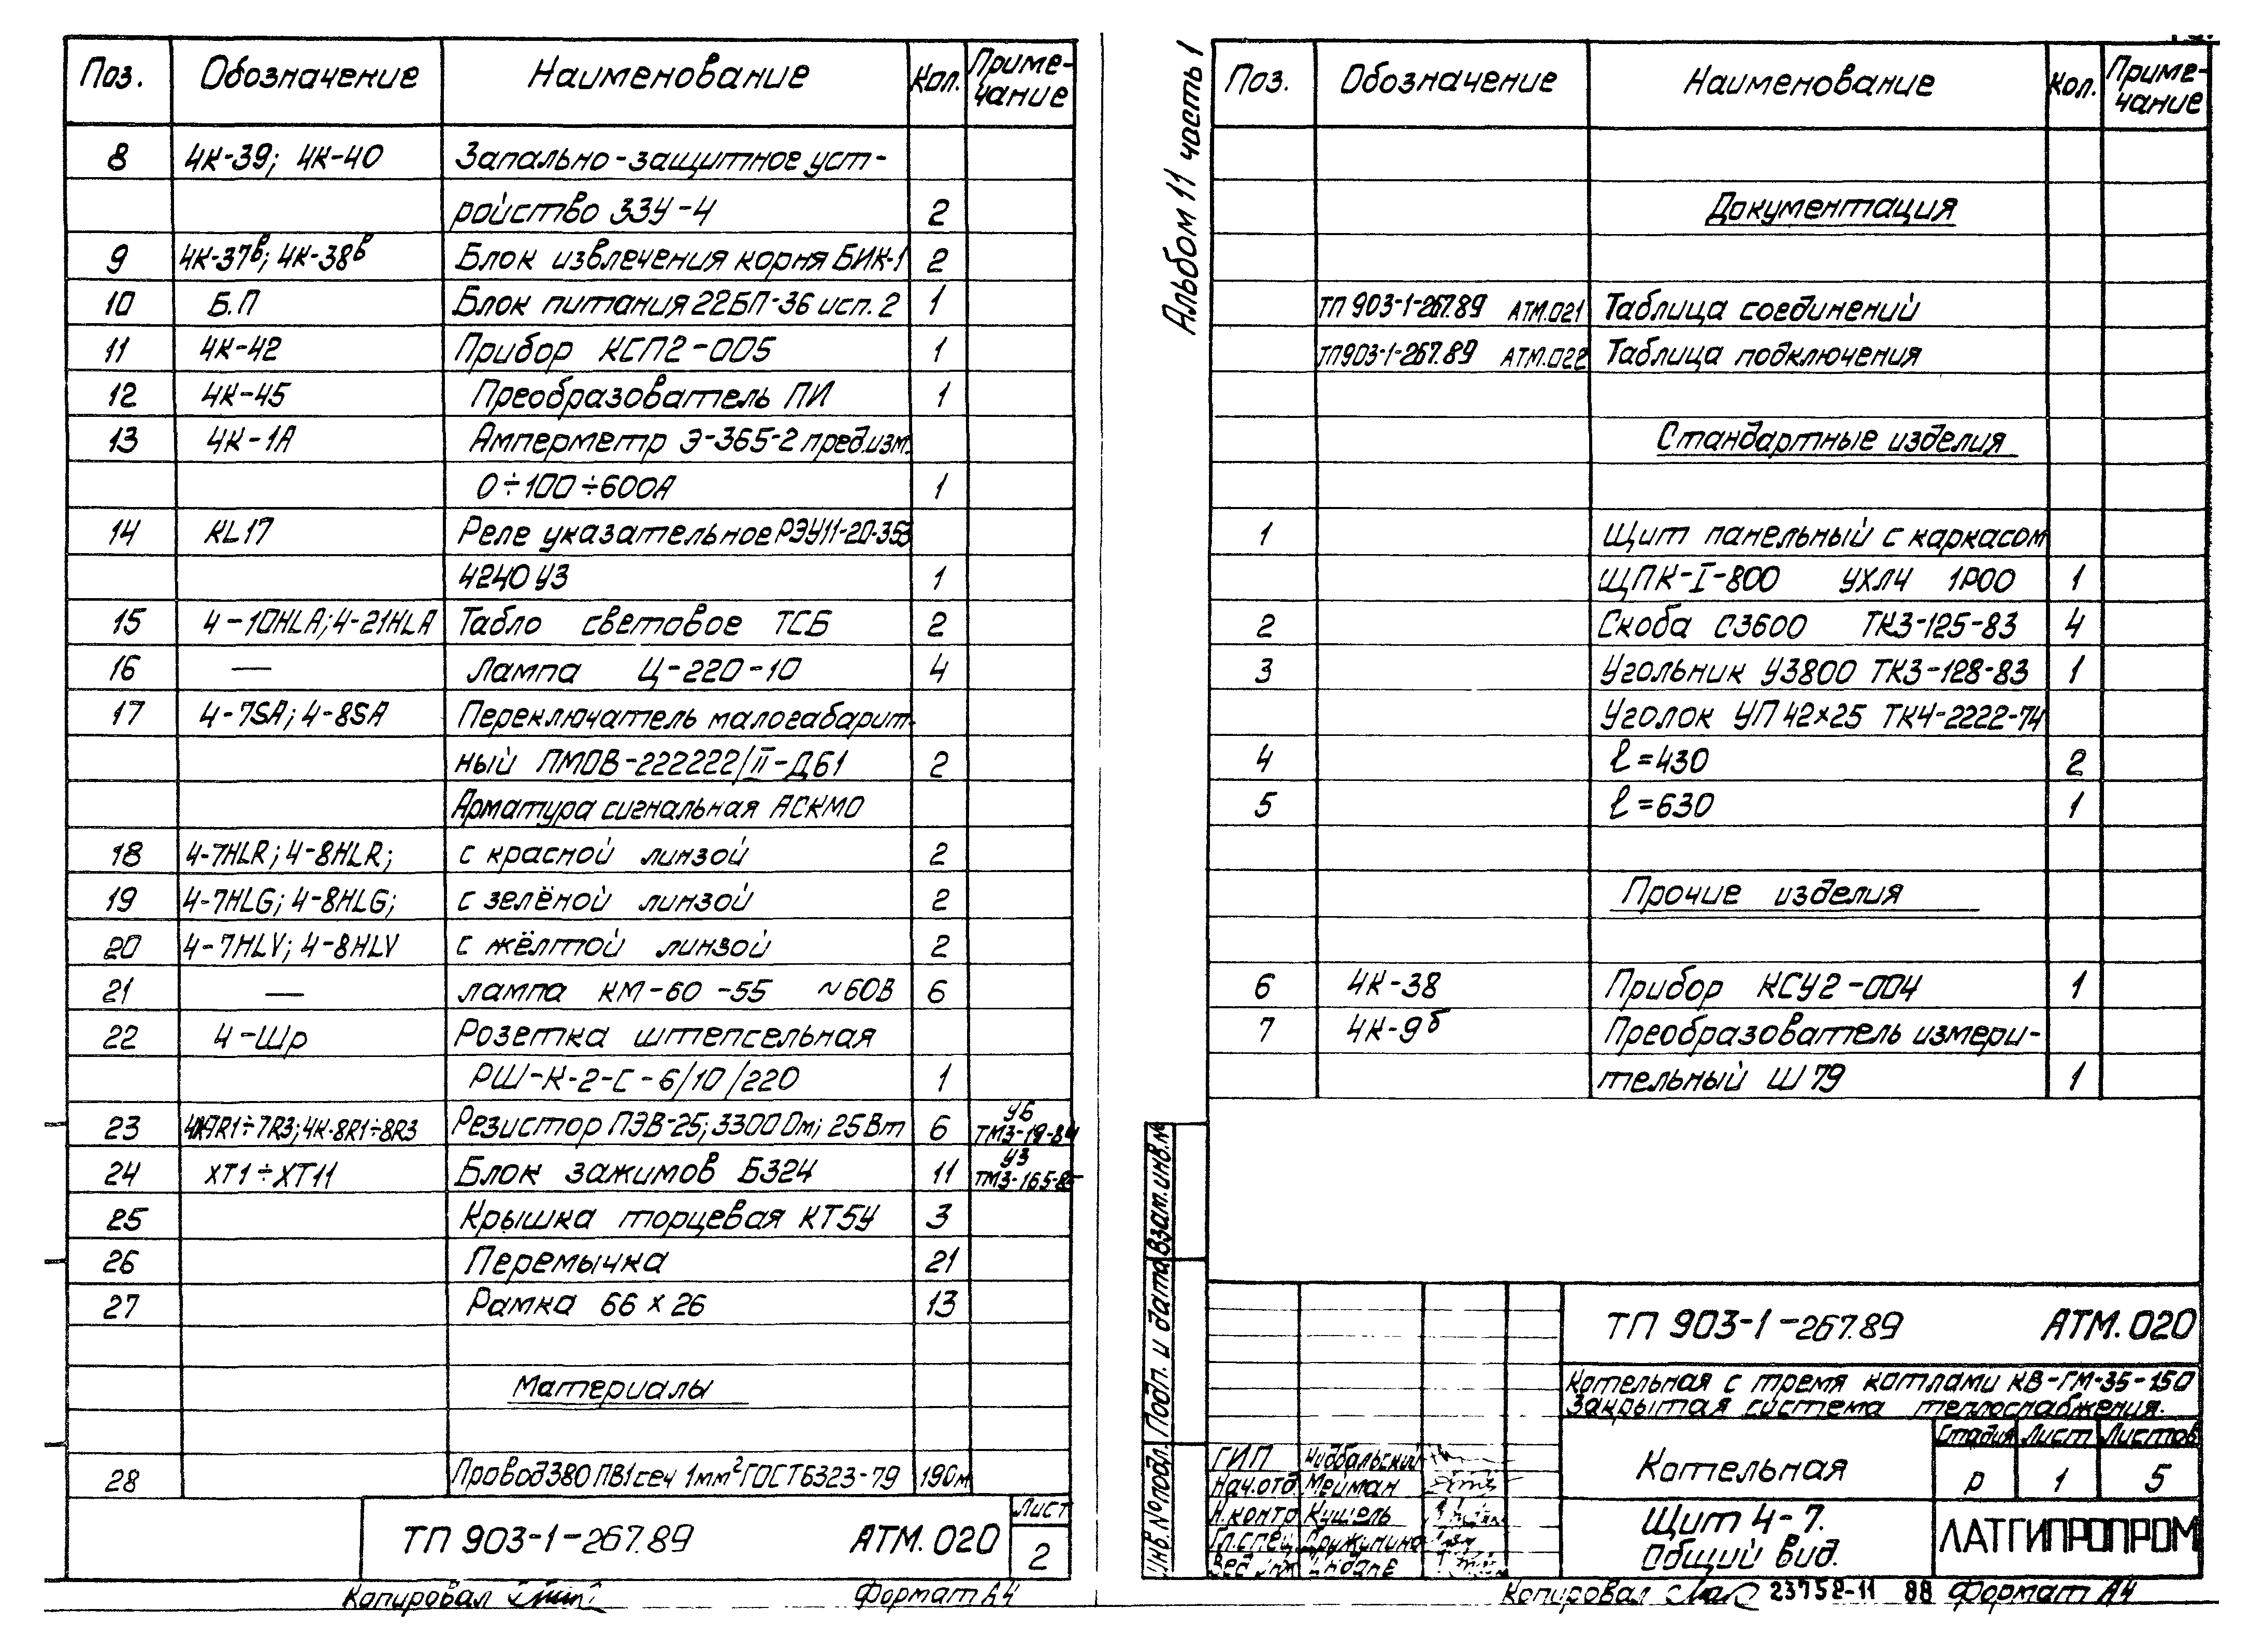 Поз. Обозначение Наименование Кол. Приме-
чание
8 4К-39; 4К-40 Запально-защитное уст-
ройство ЗЗУ-4 2
9 4К-37в; 4К-38в Блок извлечения корня БИК-1 2
10 Б.П Блок питания 22БП-36 исп. 2 1
11 4К-42 Прибор КСП2-005 1
12 4К-45 Преобразователь ПИ 1
13 4К-1А Амперметр Э-365-2 пред.изм.
0÷100÷600А 1
14 KL17 Реле указательное РЭУ11-20-353
4240 У3 1
15 4-10HLA; 4-21HLA Табло световое ТСБ 2
16 — Лампа Ц-220-10 4
17 4-7SA; 4-8SA Переключатель малогабарит-
ный ПМОВ-222222/II-Д61 2
Арматура сигнальная АСКМО
18 4-7HLR; 4-8HLR; с красной линзой 2
19 4-7HLG; 4-8HLG; с зелёной линзой 2
20 4-7HLV; 4-8HLV с жёлтой линзой 2
21 — лампа КМ-60-55 ~60В 6
22 4-Шр Розетка штепсельная
РШ-К-2-С-6/10/220 1
23 4К-7R1÷7R3; 4К-8R1÷8R3 Резистор ПЭВ-25; 3300 Ом; 25 Вт 6 У6
ТМ3-19-84
24 ХТ1÷ХТ11 Блок зажимов Б324 11 У3
ТМ3-165-85
25 Крышка торцевая КТ5У 3
26 Перемычка 21
27 Рамка 66×26 13
Материалы
28 Провод 380 ПВ1 сеч 1мм² ГОСТ 6323-79 190м
ТП 903-1-267.89 АТМ.020 Лист
2
Копировал Формат А4
Альбом 11 часть 1
Поз. Обозначение Наименование Кол. Приме-
чание
Документация
ТП 903-1-267.89 АТМ.021 Таблица соединений
ТП 903-1-267.89 АТМ.022 Таблица подключения
Стандартные изделия
1 Щит панельный с каркасом
ЩПК-I-800 УХЛ4 1Р00 1
2 Скоба С3600 ТК3-125-83 4
3 Угольник У3800 ТК3-128-83 1
Уголок УП 42×25 ТК4-2222-74
4 ℓ=430 2
5 ℓ=630 1
Прочие изделия
6 4К-38 Прибор КСУ2-004 1
7 4К-9б Преобразователь измери-
тельный Ш 79 1
Инв.№подл. Подп. и дата Взам.инв.№
ТП 903-1-267.89 АТМ.020
Котельная с тремя котлами КВ-ГМ-35-150
Закрытая система теплоснабжения.
Котельная
Стадия Лист Листов
Р 1 5
ГИП
Нач.отд. Мейман
Н.контр Кушель
Гл.спец. Пружинина
Вед.инж
Щит 4-7.
Общий вид.
ЛАТГИПРОПРОМ
Копировал 23752-11 88 Формат А4